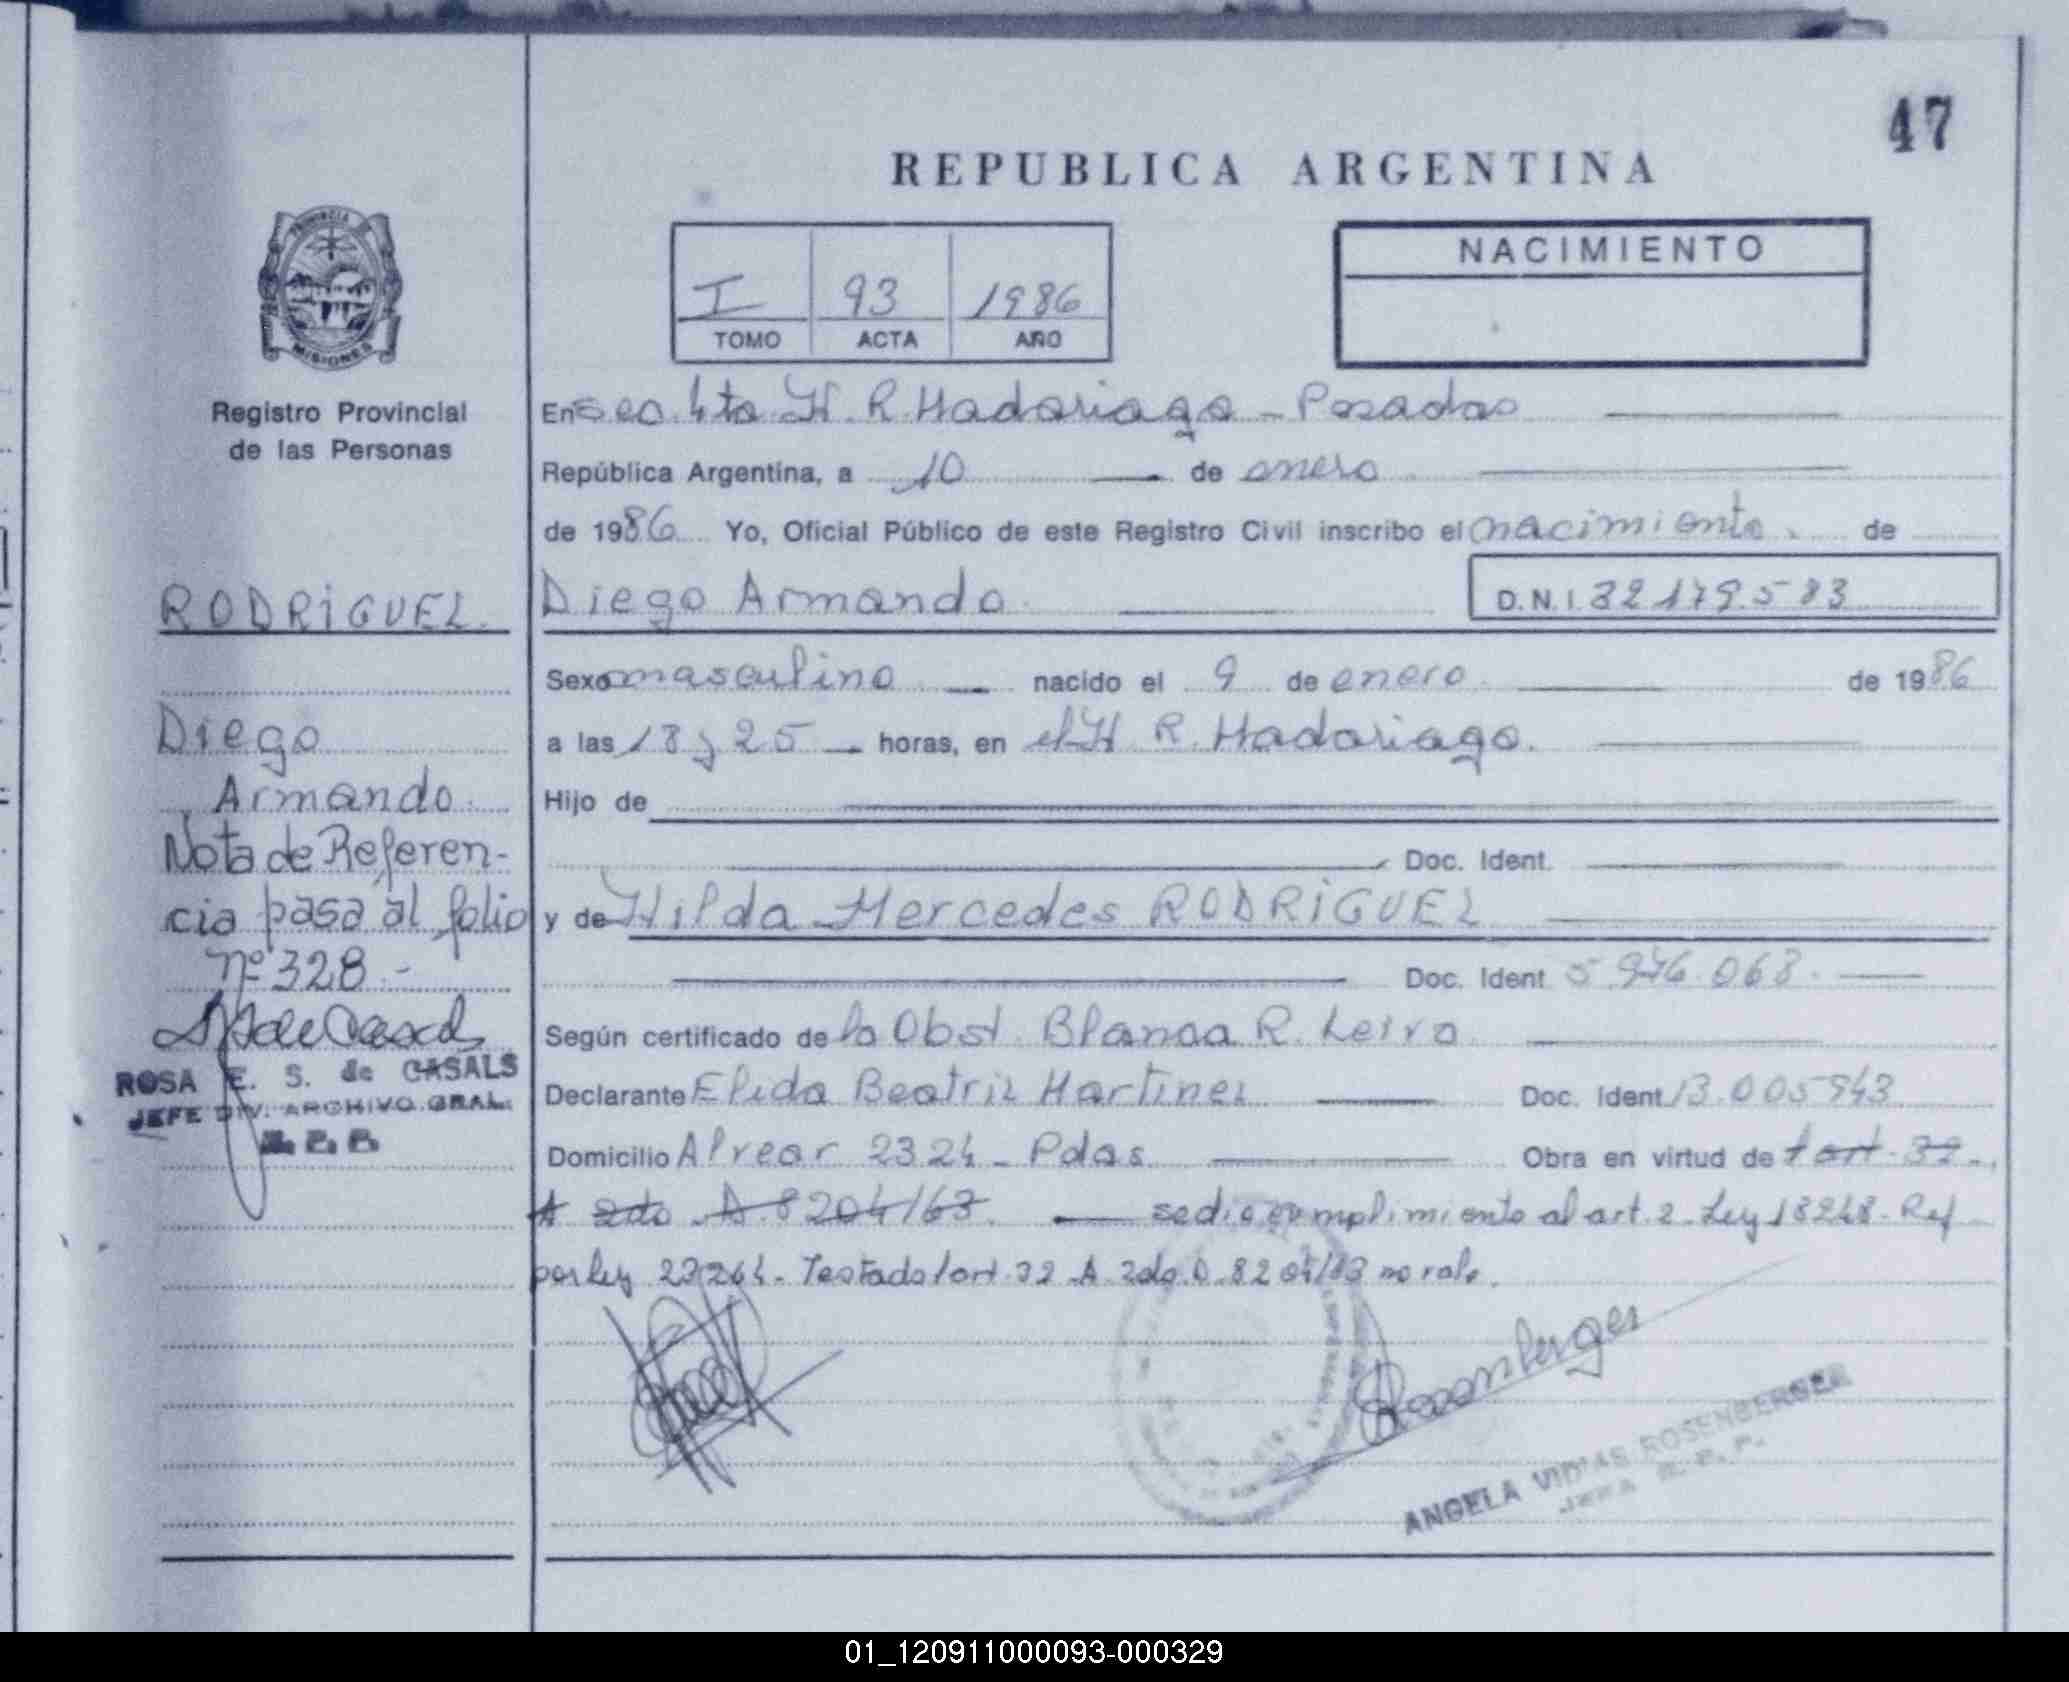 47
REPUBLICA ARGENTINA
PROVINCIA
MISIONES
Registro Provincial
de las Personas
I 93 1986
TOMO ACTA AÑO
NACIMIENTO
En Sec. 4ta H. R. Madariaga - Posadas
República Argentina, a 10 de enero
de 1986 Yo, Oficial Público de este Registro Civil inscribo el nacimiento de
RODRIGUEZ
Diego Armando D.N.I. 32179.583
Sexo masculino nacido el 9 de enero de 1986
Diego
a las 18 y 25 horas, en el H R. Madariaga.
Armando
Hijo de
Nota de Referen-
Doc. Ident.
cia pasa al folio
y de Hilda Mercedes RODRIGUEZ
nº 328.-
Doc. Ident 5.976.068.
Según certificado de la Obst. Blanca R. Leiva
ROSA E. S. de CASALS
JEFE DIV. ARCHIVO GRAL.
Declarante Elida Beatriz Martinez Doc. Ident. 13.005943
Domicilio Alvear 2324 - Pdas Obra en virtud de 1 art. 32.
A 2do A. 8204/63. se dio cumplimiento al art. 2 Ley 18248. Ref
por ley 23264. Testado 1 art. 32 A 2do D. 8204/63 no vale.
Rosenberger
ANGELA VIDIAS ROSENBERGER
JEFA R. P. P.
01_120911000093-000329